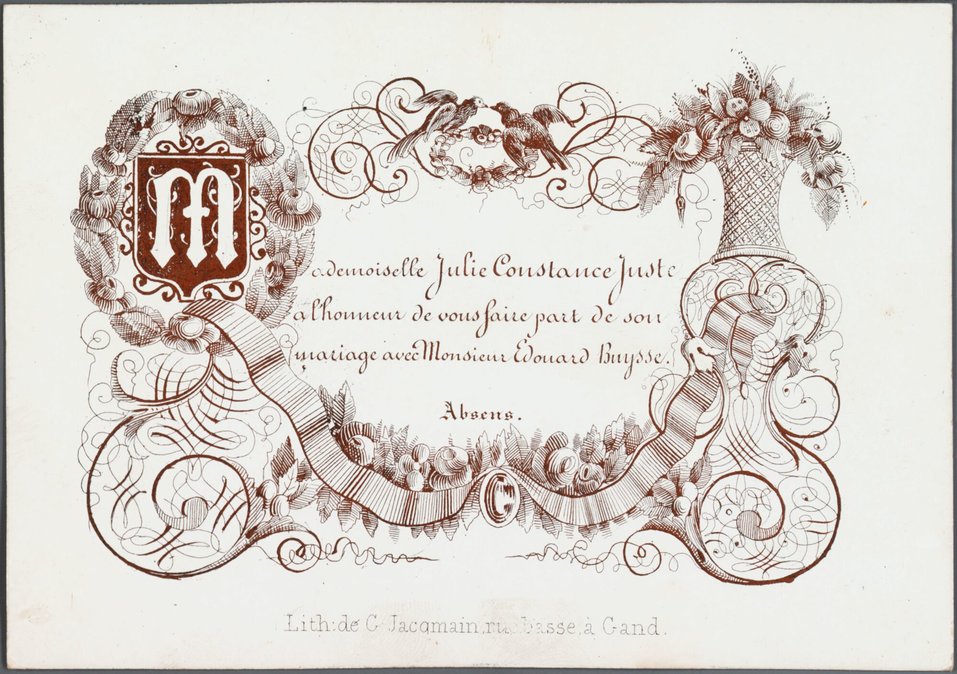 Mademoiselle Julie Constance Juste
a l'honneur de vous faire part de son
mariage avec Monsieur Edouard Buysse.
Absens.
Lith: de G. Jacqmain, rue basse, à Gand.